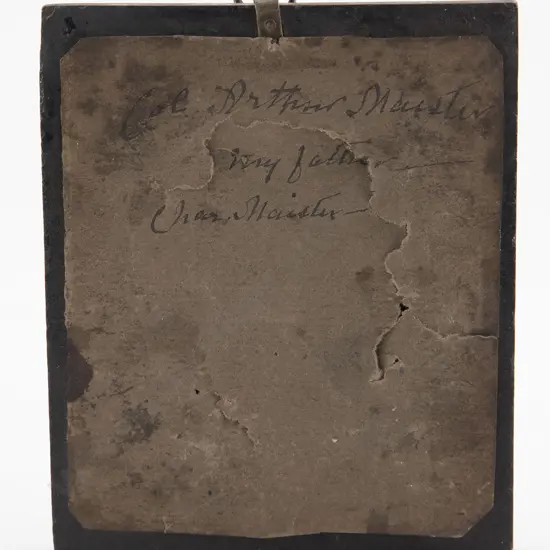 Col Arthur Maister
my father
Chas. Maister